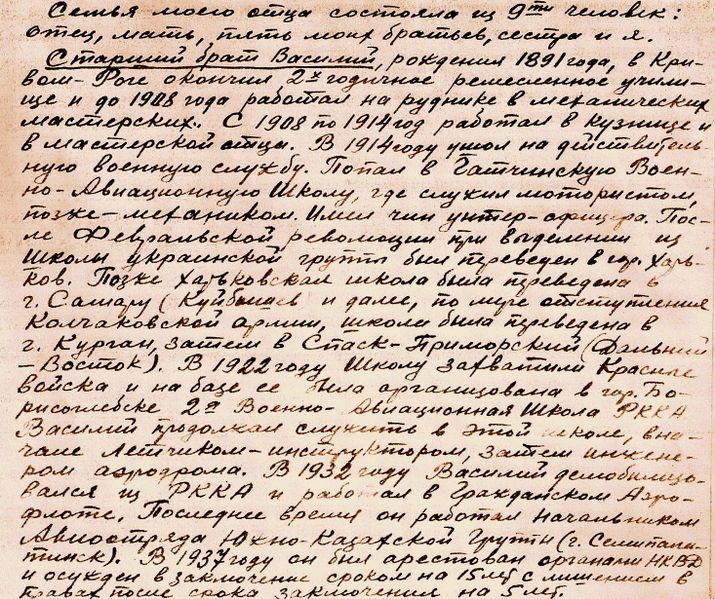 Семья моего отца состояла из 9ти человек:
отец, мать, пять моих братьев, сестра и я.
Старший брат Василий, рождения 1891 года, в Кри-
вом-Роге окончил 2х годичное ремесленное учили-
ще и до 1908 года работал на руднике в механических
мастерских. С 1908 по 1914 год работал в кузнице и
в мастерской отца. В 1914 году ушол на действитель-
ную военную службу. Попал в Гатчинскую Воен-
но-Авиационную Школу, где служил мотористом,
позже-механиком. Имел чин унтер-офицера. Пос-
ле Февральской революции при выделении из
Школы украинской группы был переведен в гор. Харь-
ков. Позже Харьковская школа была переведена в
г. Самару (Куйбышев и далее, по мере отступления
Колчаковской армии, школа была переведена в
г. Курган, затем в Спаск-Приморский (Дальний
-Восток). В 1922 году Школу захватили Красные
войска и на базе ее была организована в гор. Бо-
рисоглебске 2я Военно-Авиационная Школа РККА
Василий продолжал служить в этой школе, вна-
чале летчиком-инструктором, затем инжене-
ром аэродрома. В 1932 году Василий демобилизо-
вался из РККА и работал в Гражданском Аэро-
флоте. Последнее время он работал Начальником
Авиоотряда Южно-Казахской Группы (г. Семипала-
тинск). В 1937 году он был арестован органами НКВД
и осужден в заключение сроком на 15 лет с лишением в
правах после срока заключения на 5 лет.